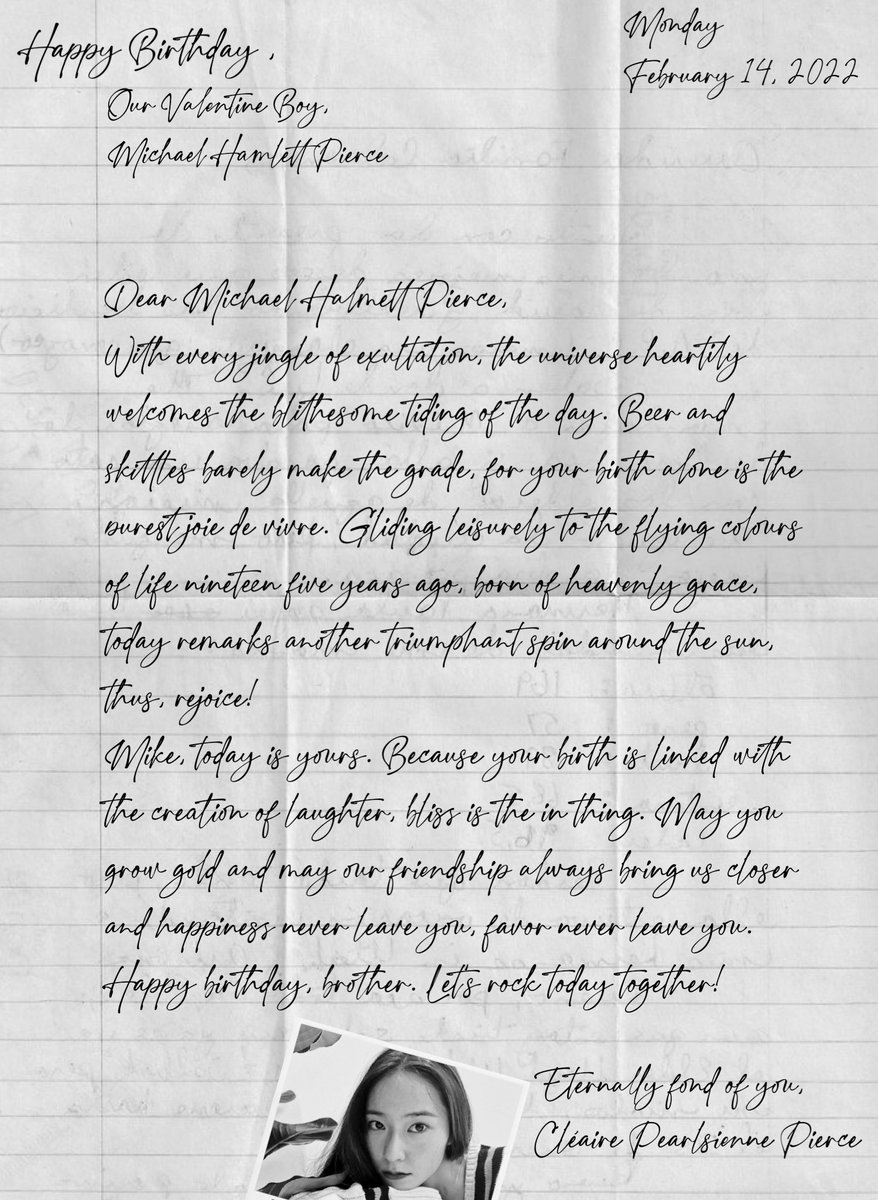 Monday
February 14, 2022
Happy Birthday ,
Our Valentine Boy,
Michael Hamlett Pierce
Dear Michael Halmett Pierce,
With every jingle of exultation, the universe heartily
welcomes the blithesome tiding of the day. Beer and
skittles barely make the grade, for your birth alone is the
purest joie de vivre. Gliding leisurely to the flying colours
of life nineteen five years ago, born of heavenly grace,
today remarks another triumphant spin around the sun,
thus, rejoice!
Mike, today is yours. Because your birth is linked with
the creation of laughter, bliss is the in thing. May you
grow gold and may our friendship always bring us closer
and happiness never leave you, favor never leave you.
Happy birthday, brother. Let's rock today together!
Eternally fond of you,
Cléaire Pearlsienne Pierce